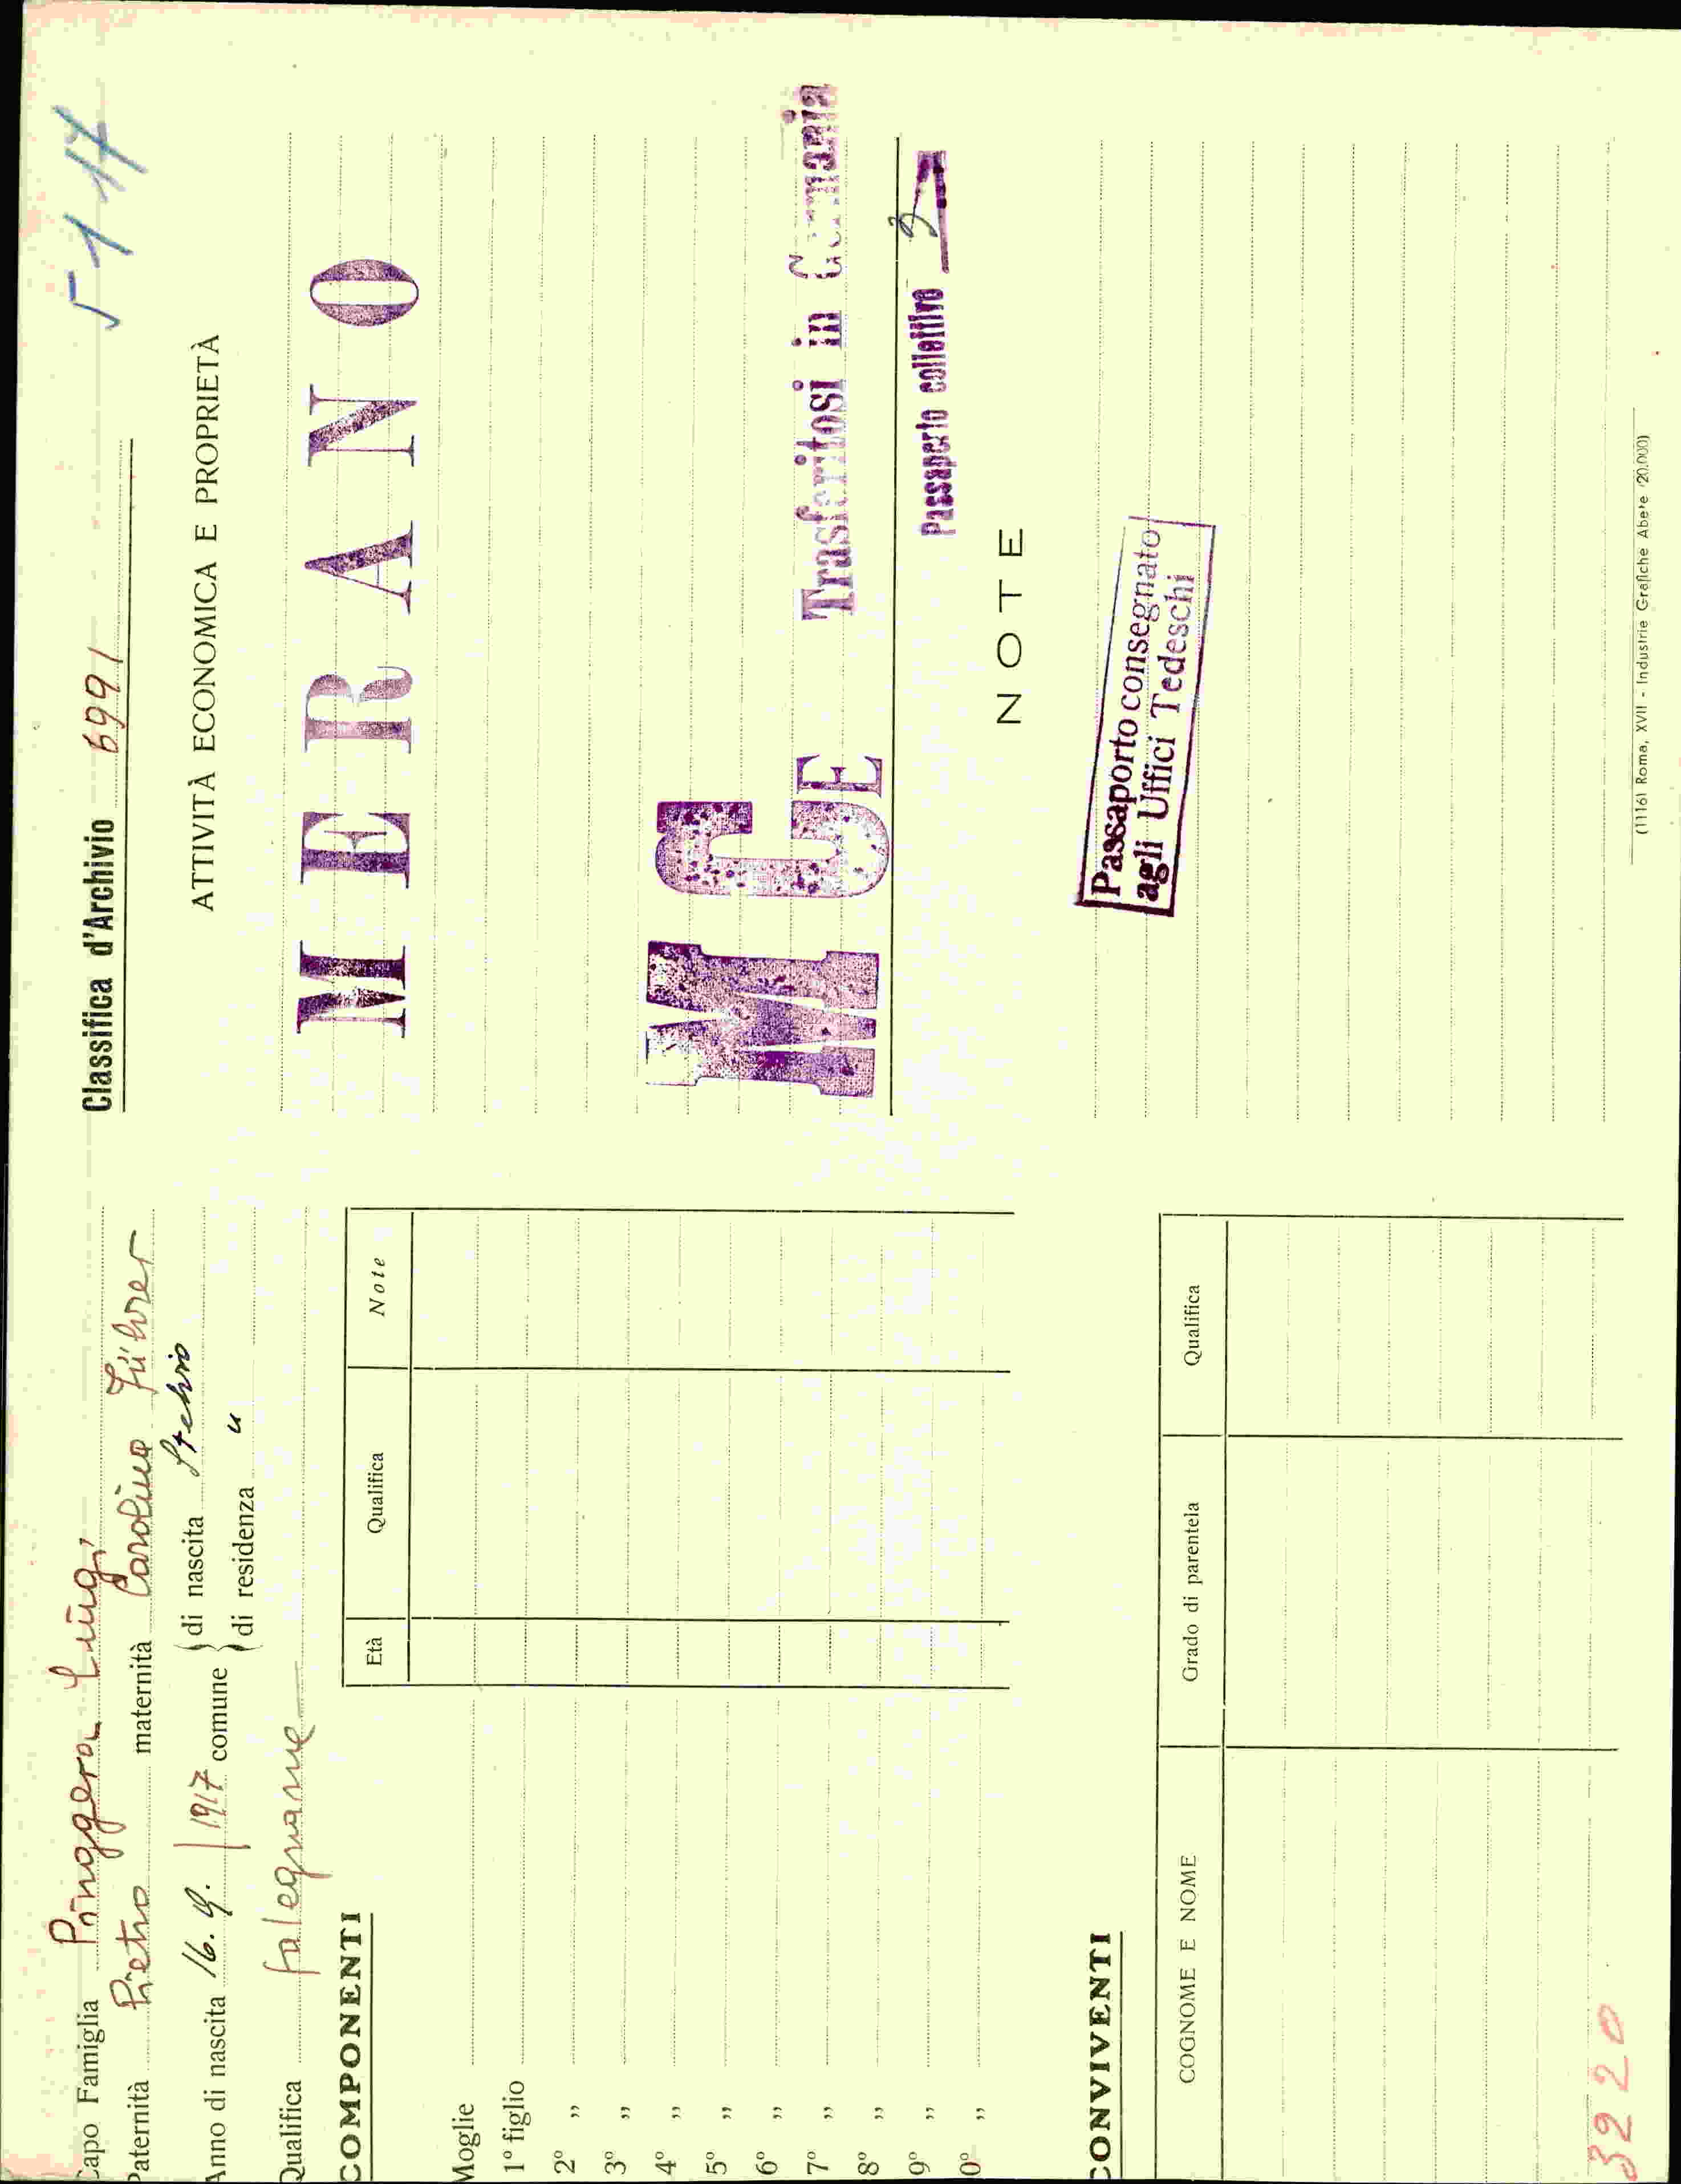 Capo Famiglia Pinggera Luigi
Paternità Pietro maternità Carolina Führer
Anno di nascita 16. 9. 1917 comune } di nascita Stelvio
di residenza "
Qualifica falegname
COMPONENTI
Età Qualifica Note
Moglie
1° figlio
2° "
3° "
4° "
5° "
6° "
7° "
8° "
9° "
0° "
CONVIVENTI
COGNOME E NOME Grado di parentela Qualifica
3220
5117
Classifica d'Archivio 6991
ATTIVITÀ ECONOMICA E PROPRIETÀ
MERANO
M G
E Trasferitosi in Germania
Passaporto collettivo
NOTE
Passaporto consegnato
agli Uffici Tedeschi
(1116) Roma, XVII - Industrie Grafiche Abete (20.000)